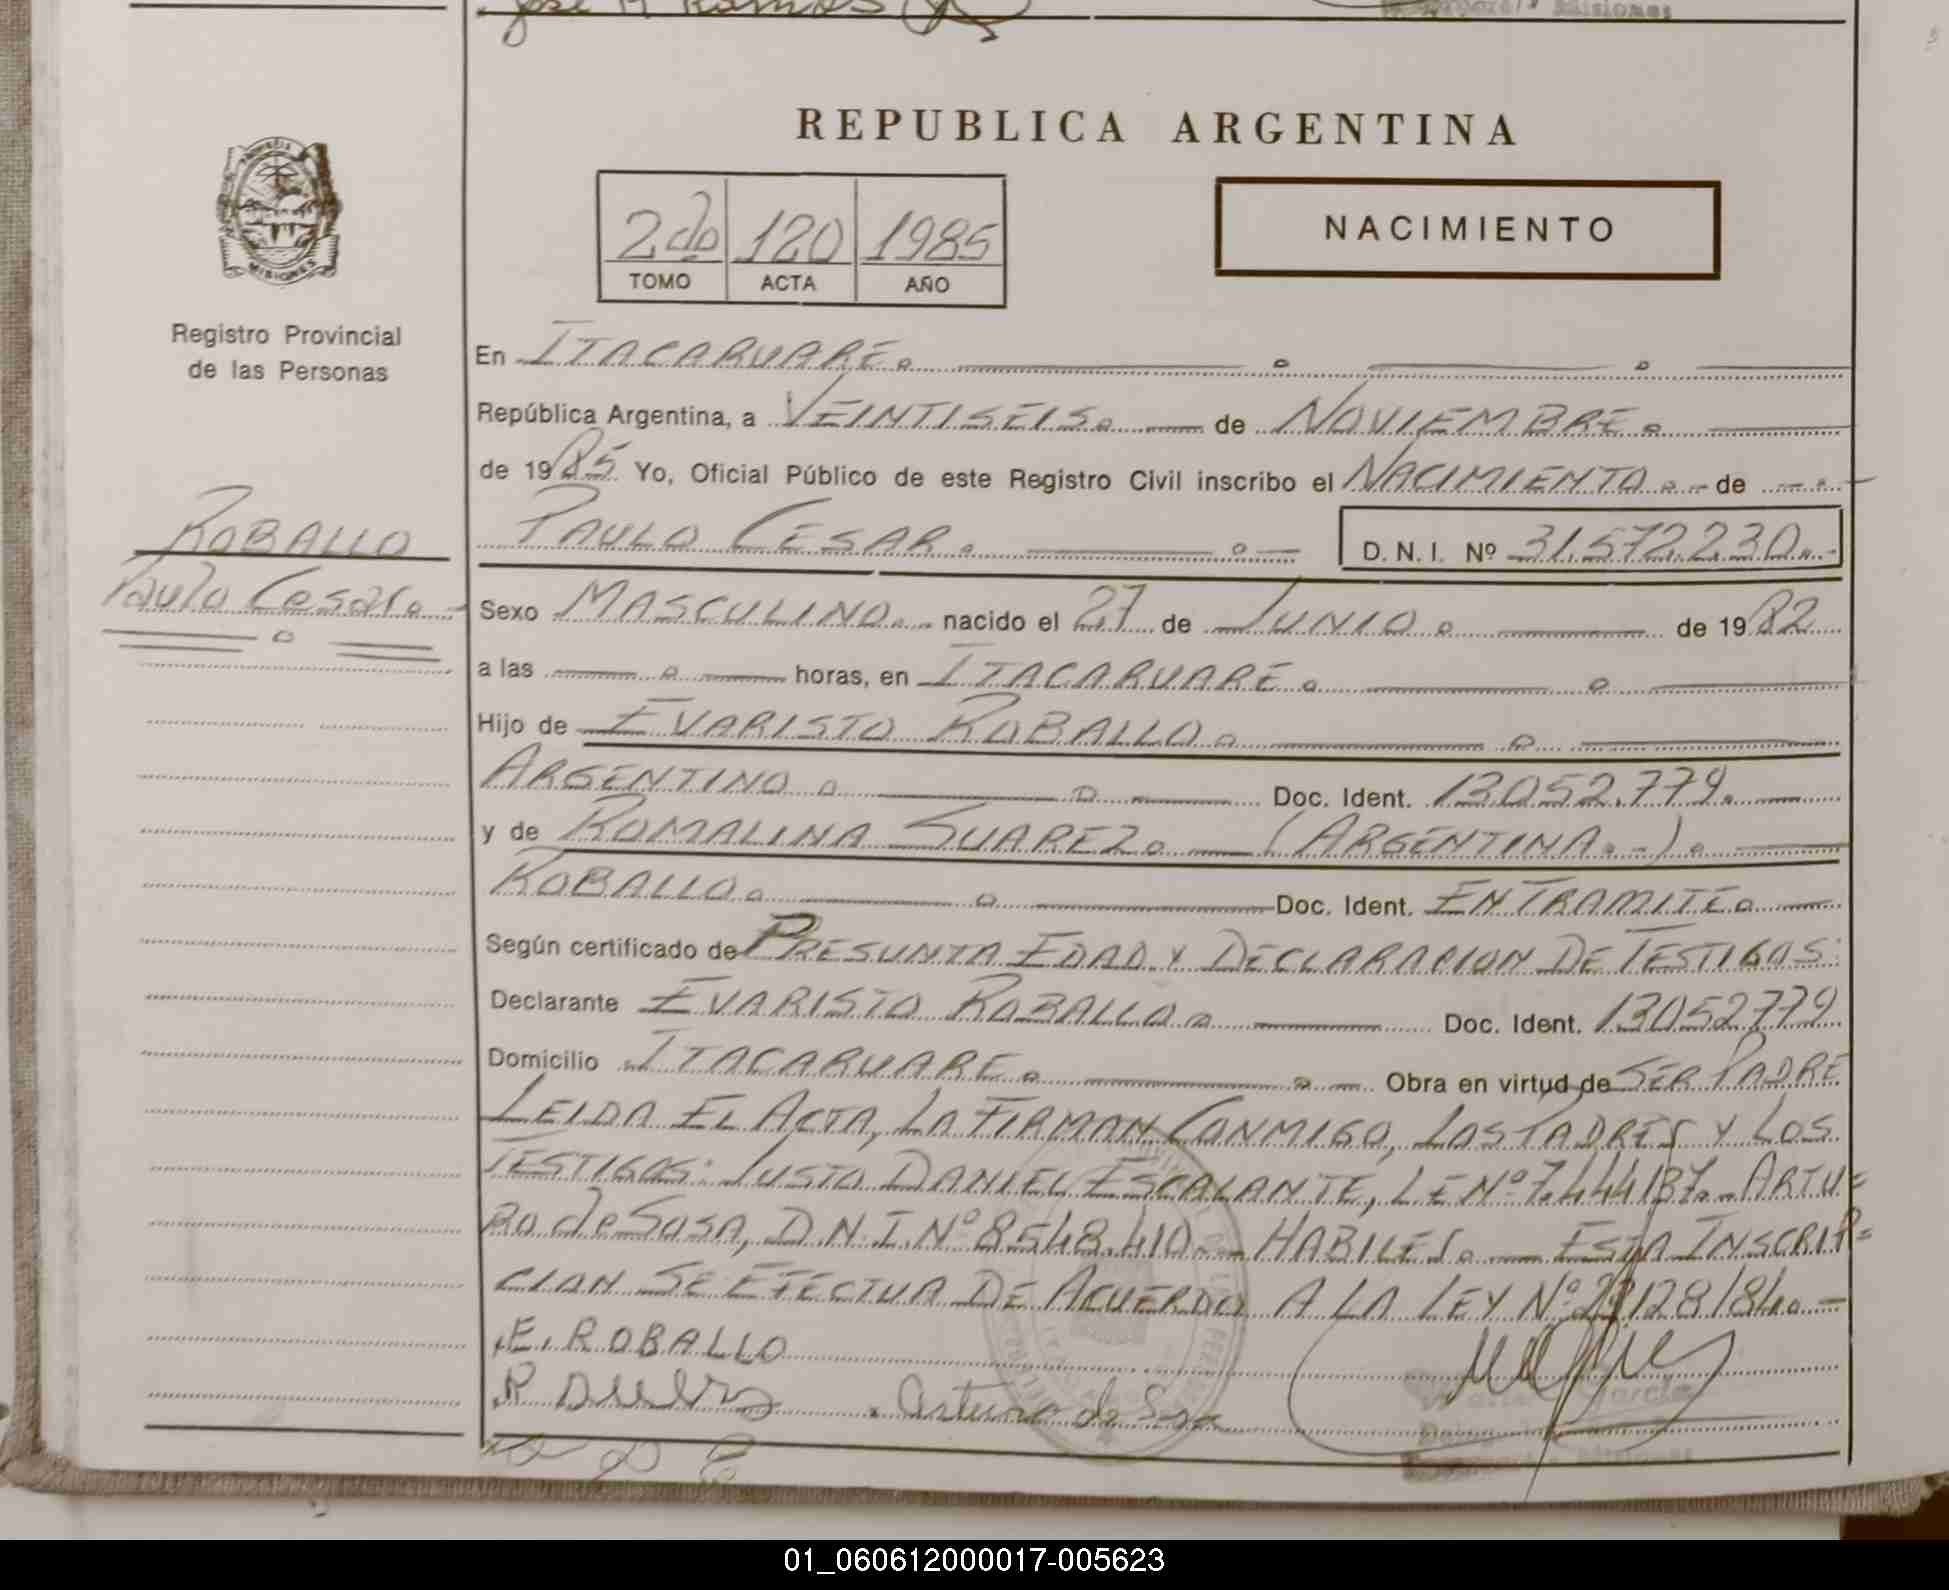 José R Ramos
Misiones
REPUBLICA ARGENTINA
2do 120 1985
TOMO ACTA AÑO
NACIMIENTO
MISIONES
Registro Provincial
de las Personas
ROBALLO
Paulo Cesar.-
En ITACARUARE.
República Argentina, a VEINTISEIS. de NOVIEMBRE.
de 1985 Yo, Oficial Público de este Registro Civil inscribo el NACIMIENTO.- de
PAULO CESAR. D.N.I. Nº 31.572.230.-
Sexo MASCULINO. nacido el 27 de JUNIO. de 1982
a las horas, en ITACARUARE.
Hijo de EVARISTO ROBALLO.
ARGENTINO. Doc. Ident. 13052.779.
y de ROMALINA SUAREZ. (ARGENTINA.-).
ROBALLO. Doc. Ident. EN TRAMITE.
Según certificado de PRESUNTA EDAD Y DECLARACION DE TESTIGOS:
Declarante EVARISTO ROBALLO. Doc. Ident. 13052779
Domicilio ITACARUARE. Obra en virtud de SER PADRE
LEIDA EL ACTA, LA FIRMAN CONMIGO, LOS PADRES Y LOS
TESTIGOS: JUSTO DANIEL ESCALANTE, L E Nº 7.444137.- ARTU=
RO de SOSA, D.N.I. Nº 8548.410.- HABILES. ESTA INSCRIP=
CION SE EFECTUA DE ACUERDO A LA LEY Nº 23128/84.-
E. ROBALLO
Arturo de Sosa
Garcia
Misiones
01_060612000017-005623